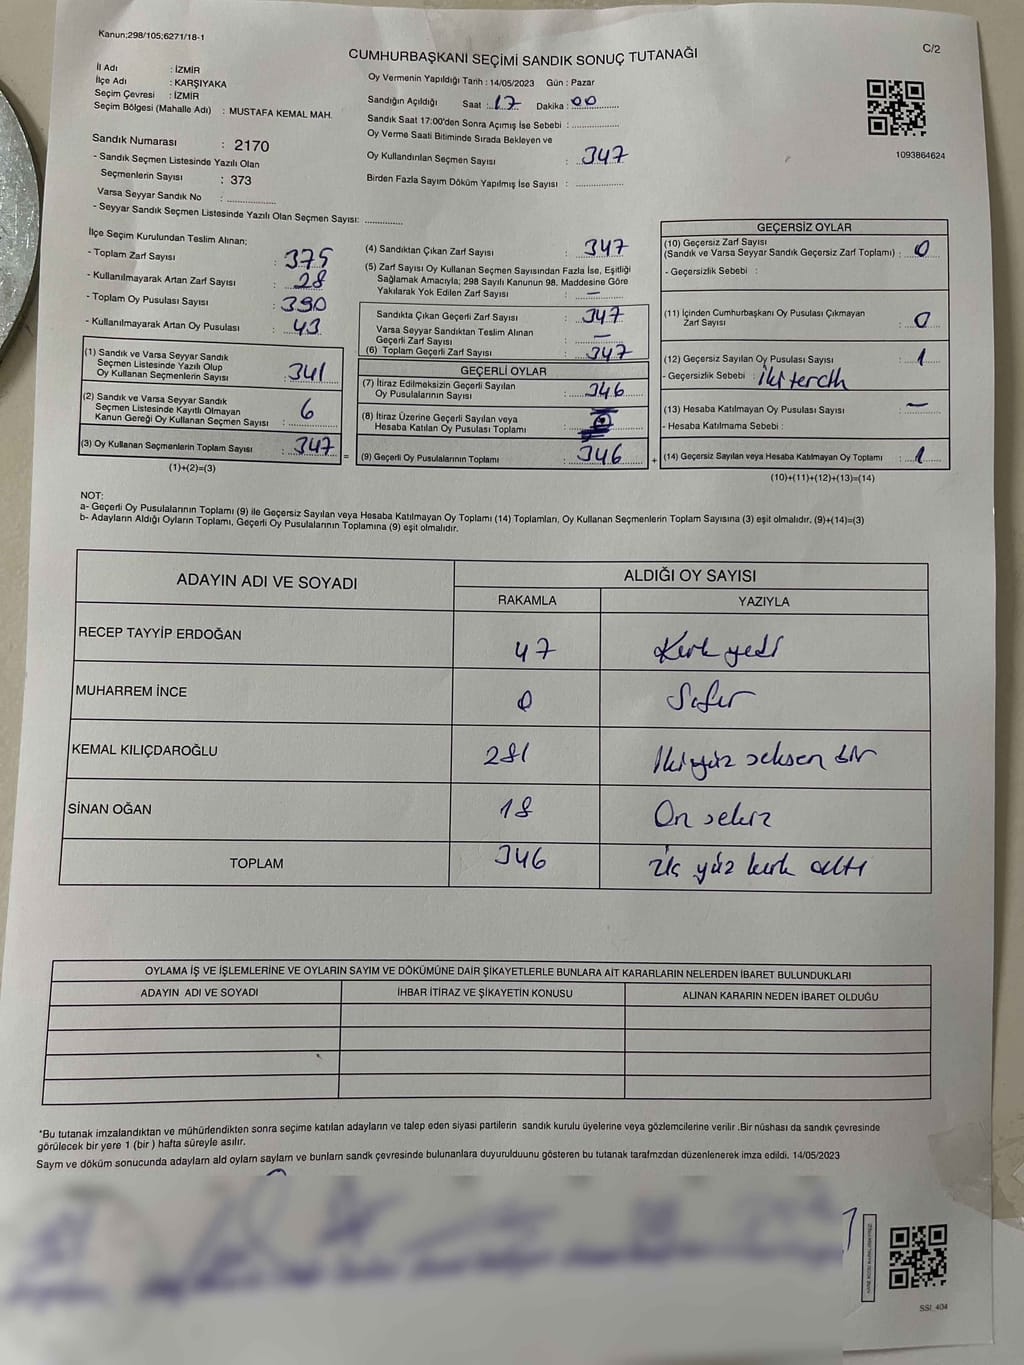 Kanun;298/105;6271/18-1
C/2
CUMHURBAŞKANI SEÇİMİ SANDIK SONUÇ TUTANAĞI
İl Adı : İZMİR
İlçe Adı : KARŞIYAKA
Seçim Çevresi : İZMİR
Seçim Bölgesi (Mahalle Adı) : MUSTAFA KEMAL MAH.
Sandık Numarası : 2170
- Sandık Seçmen Listesinde Yazılı Olan
Seçmenlerin Sayısı : 373
Varsa Seyyar Sandık No : ..................
- Seyyar Sandık Seçmen Listesinde Yazılı Olan Seçmen Sayısı: ..............
Oy Vermenin Yapıldığı Tarih : 14/05/2023 Gün : Pazar
Sandığın Açıldığı Saat : 17 Dakika : 00
Sandık Saat 17:00'den Sonra Açımış İse Sebebi : ..................
Oy Verme Saati Bitiminde Sırada Bekleyen ve
Oy Kullandırılan Seçmen Sayısı : 347
Birden Fazla Sayım Döküm Yapılmış İse Sayısı : ..................
1093864624
İlçe Seçim Kurulundan Teslim Alınan;
- Toplam Zarf Sayısı : 375
- Kullanılmayarak Artan Zarf Sayısı : 28
- Toplam Oy Pusulası Sayısı : 390
- Kullanılmayarak Artan Oy Pusulası : 43
(1) Sandık ve Varsa Seyyar Sandık
Seçmen Listesinde Yazılı Olup
Oy Kullanan Seçmenlerin Sayısı : 341
(2) Sandık ve Varsa Seyyar Sandık
Seçmen Listesinde Kayıtlı Olmayan
Kanun Gereği Oy Kullanan Seçmen Sayısı : 6
(3) Oy Kullanan Seçmenlerin Toplam Sayısı : 347 =
(1)+(2)=(3)
(4) Sandıktan Çıkan Zarf Sayısı : 347
(5) Zarf Sayısı Oy Kullanan Seçmen Sayısından Fazla İse, Eşitliği
Sağlamak Amacıyla; 298 Sayılı Kanunun 98. Maddesine Göre
Yakılarak Yok Edilen Zarf Sayısı : —
Sandıkta Çıkan Geçerli Zarf Sayısı : 347
Varsa Seyyar Sandıktan Teslim Alınan
Geçerli Zarf Sayısı : —
(6) Toplam Geçerli Zarf Sayısı : 347
GEÇERLİ OYLAR
(7) İtiraz Edilmeksizin Geçerli Sayılan
Oy Pusulalarının Sayısı : 346
(8) İtiraz Üzerine Geçerli Sayılan veya
Hesaba Katılan Oy Pusulası Toplamı :
(9) Geçerli Oy Pusulalarının Toplamı : 346 +
GEÇERSİZ OYLAR
(10) Geçersiz Zarf Sayısı
(Sandık ve Varsa Seyyar Sandık Geçersiz Zarf Toplamı) : 0
- Geçersizlik Sebebi :
(11) İçinden Cumhurbaşkanı Oy Pusulası Çıkmayan
Zarf Sayısı : 0
(12) Geçersiz Sayılan Oy Pusulası Sayısı : 1
- Geçersizlik Sebebi : iki tercih
(13) Hesaba Katılmayan Oy Pusulası Sayısı : —
- Hesaba Katılmama Sebebi :
(14) Geçersiz Sayılan veya Hesaba Katılmayan Oy Toplamı : 1
(10)+(11)+(12)+(13)=(14)
NOT:
a- Geçerli Oy Pusulalarının Toplamı (9) ile Geçersiz Sayılan veya Hesaba Katılmayan Oy Toplamı (14) Toplamları, Oy Kullanan Seçmenlerin Toplam Sayısına (3) eşit olmalıdır. (9)+(14)=(3)
b- Adayların Aldığı Oyların Toplamı, Geçerli Oy Pusulalarının Toplamına (9) eşit olmalıdır.
ADAYIN ADI VE SOYADI
ALDIĞI OY SAYISI
RAKAMLA YAZIYLA
RECEP TAYYİP ERDOĞAN 47 Kırk yedi
MUHARREM İNCE 0 Sıfır
KEMAL KILIÇDAROĞLU 281 İki yüz seksen bir
SİNAN OĞAN 18 On sekiz
TOPLAM 346 Üç yüz kırk altı
OYLAMA İŞ VE İŞLEMLERİNE VE OYLARIN SAYIM VE DÖKÜMÜNE DAİR ŞİKAYETLERLE BUNLARA AİT KARARLARIN NELERDEN İBARET BULUNDUKLARI
ADAYIN ADI VE SOYADI İHBAR İTİRAZ VE ŞİKAYETİN KONUSU ALINAN KARARIN NEDEN İBARET OLDUĞU
*Bu tutanak imzalandıktan ve mühürlendikten sonra seçime katılan adayların ve talep eden siyasi partilerin sandık kurulu üyelerine veya gözlemcilerine verilir .Bir nüshası da sandık çevresinde
görülecek bir yere 1 (bir ) hafta süreyle asılır.
Sayım ve döküm sonucunda adayların ald oyların sayların ve bunların sandk çevresinde bulunanlara duyurulduunu gösteren bu tutanak tarafmzdan düzenlenerek imza edildi. 14/05/2023
SSI_404